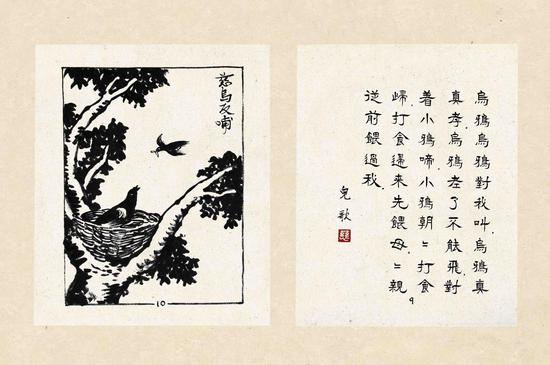 烏鴉烏鴉對我叫烏鴉真
真孝烏鴉老了不能飛對
著小鴉啼小鴉朝〻打食
歸打食還來先餵母〻親
從前餵過我
兒歌
9
慈烏反哺
10